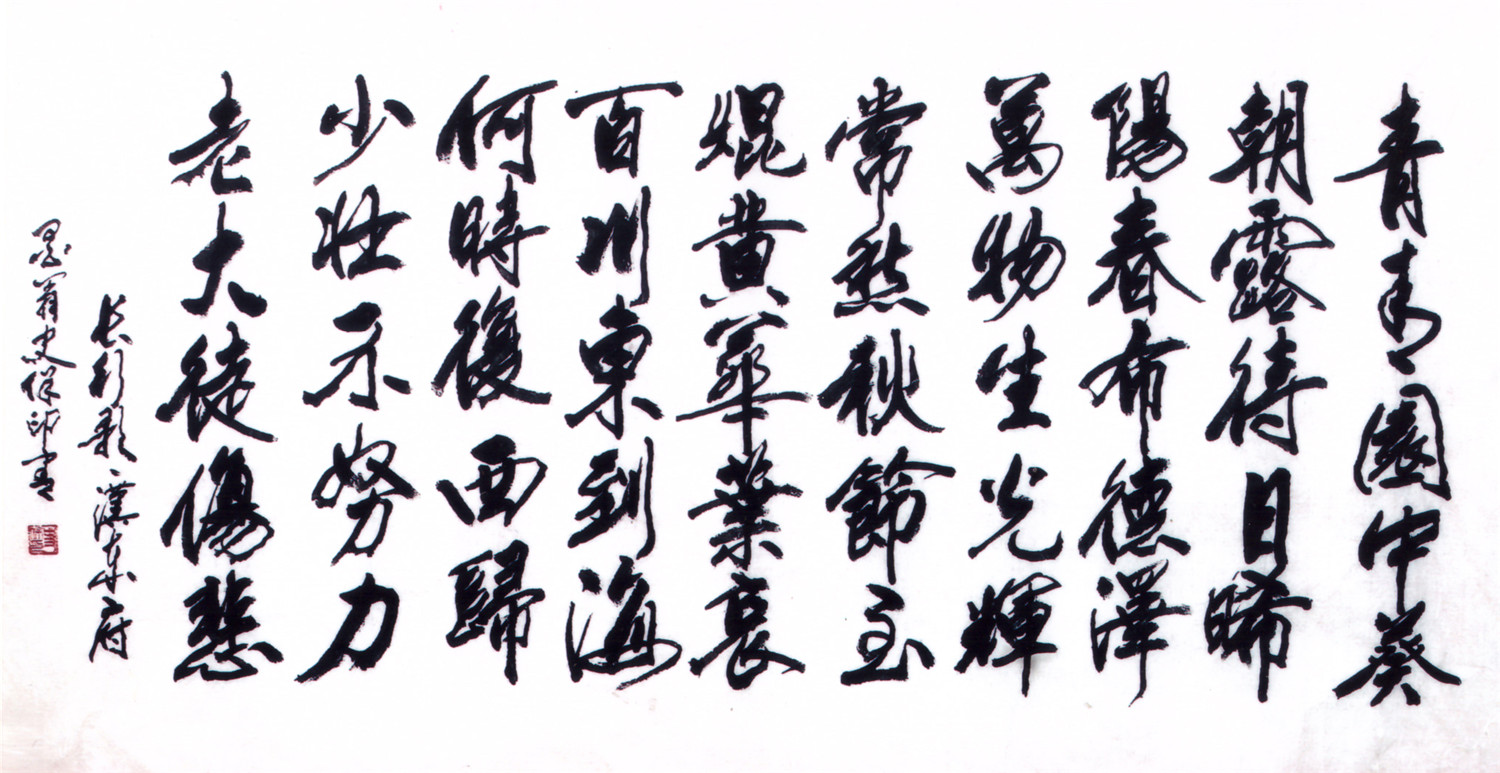 青青園中葵
朝露待日晞
陽春布德澤
萬物生光輝
常愁秋節至
焜黄華葉衰
百川東到海
何時復西歸
少壯不努力
老大徒傷悲
長行歌漢東府
墨翁史保印書